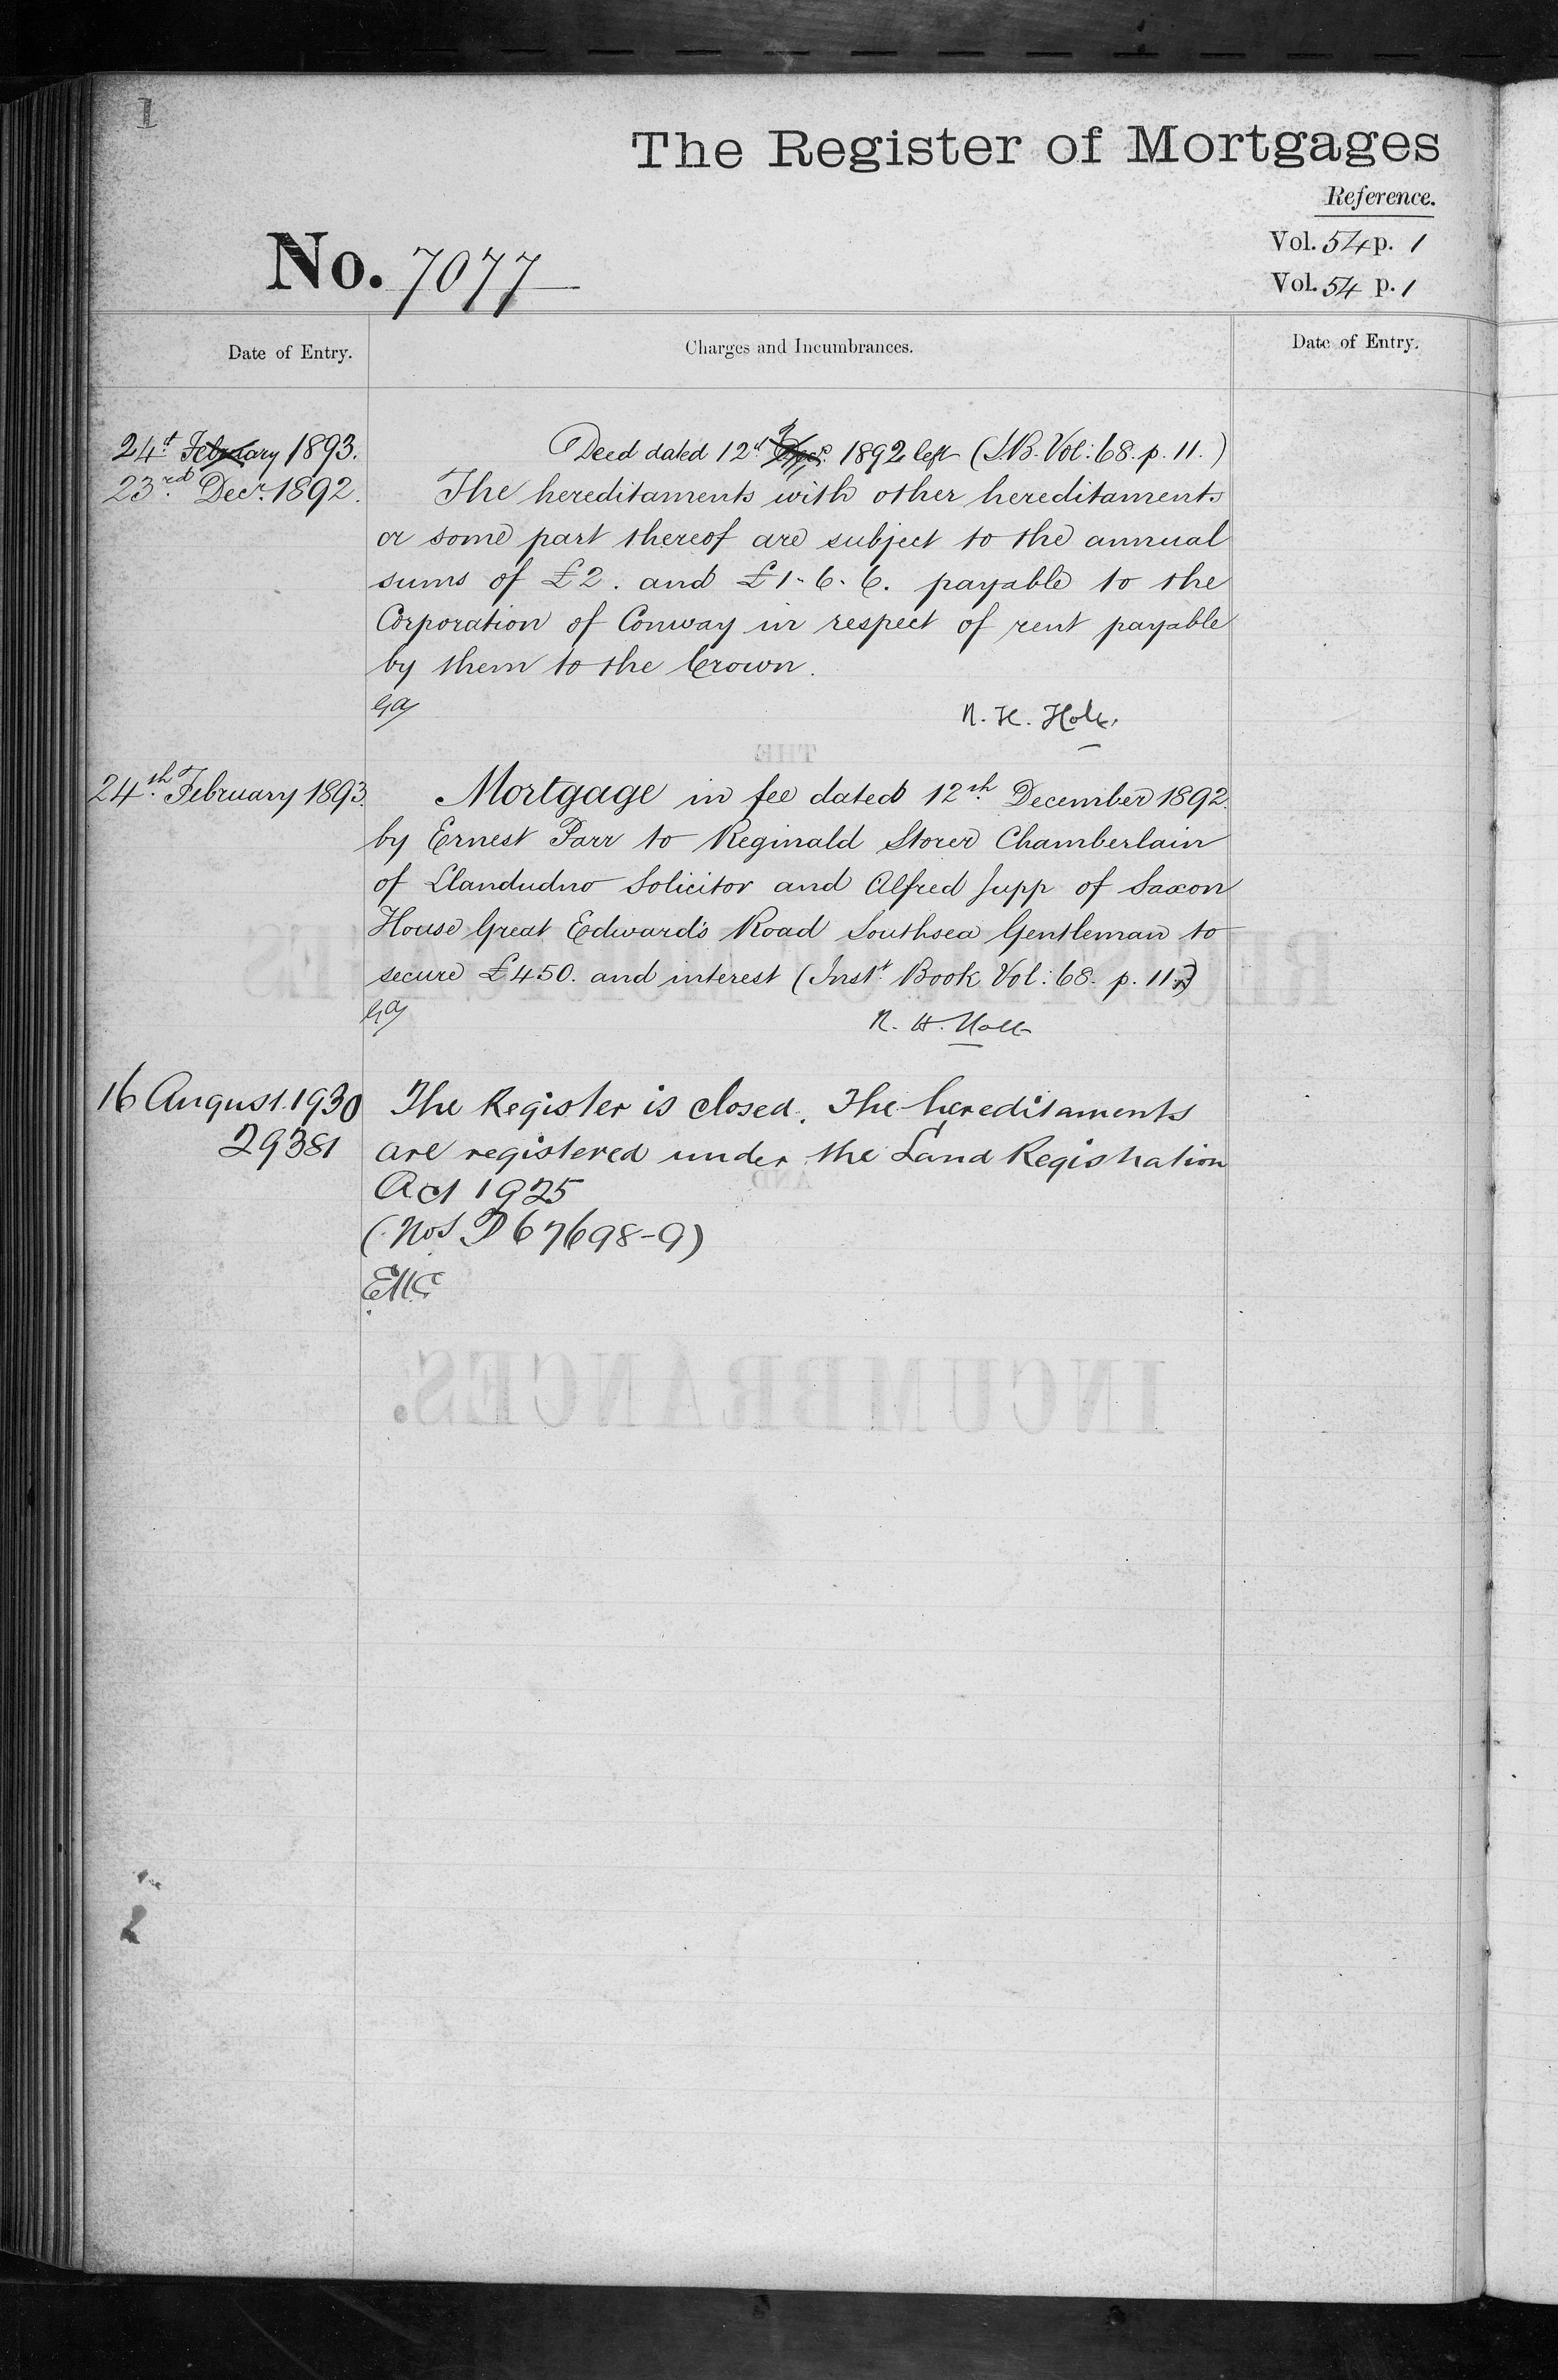 1
The Register of Mortgages
Reference.
No. 7077
Vol. 54 p. 1
Vol. 54 p. 1
Date of Entry.
Charges and Incumbrances.
Date of Entry.
24t February 1893.
Deed dated 12t 1892 left (I.B. Vol: 68. p. 11.)
23rd Decr. 1892.
The hereditaments with other hereditaments
or some part thereof are subject to the annual
sums of £2. and £1-6-6. payable to the
Corporation of Conway in respect of rent payable
by them to the Crown.
N. H. Holt.
THE
24th February 1893
Mortgage in fee dated 12th December 1892
by Ernest Parr to Reginald Storer Chamberlain
of Llandudno Solicitor and Alfred Jupp of Saxon
House Great Edward's Road Southsea Gentleman to
secure £450. and interest (Instt Book Vol: 68. p. 11.)
N. H. Holt
16 August 1930
The Register is closed. The hereditaments
29381
are registered under the Land Registration
AND
Act 1925
(Nos D67698-9)
INCUMBRANCES.